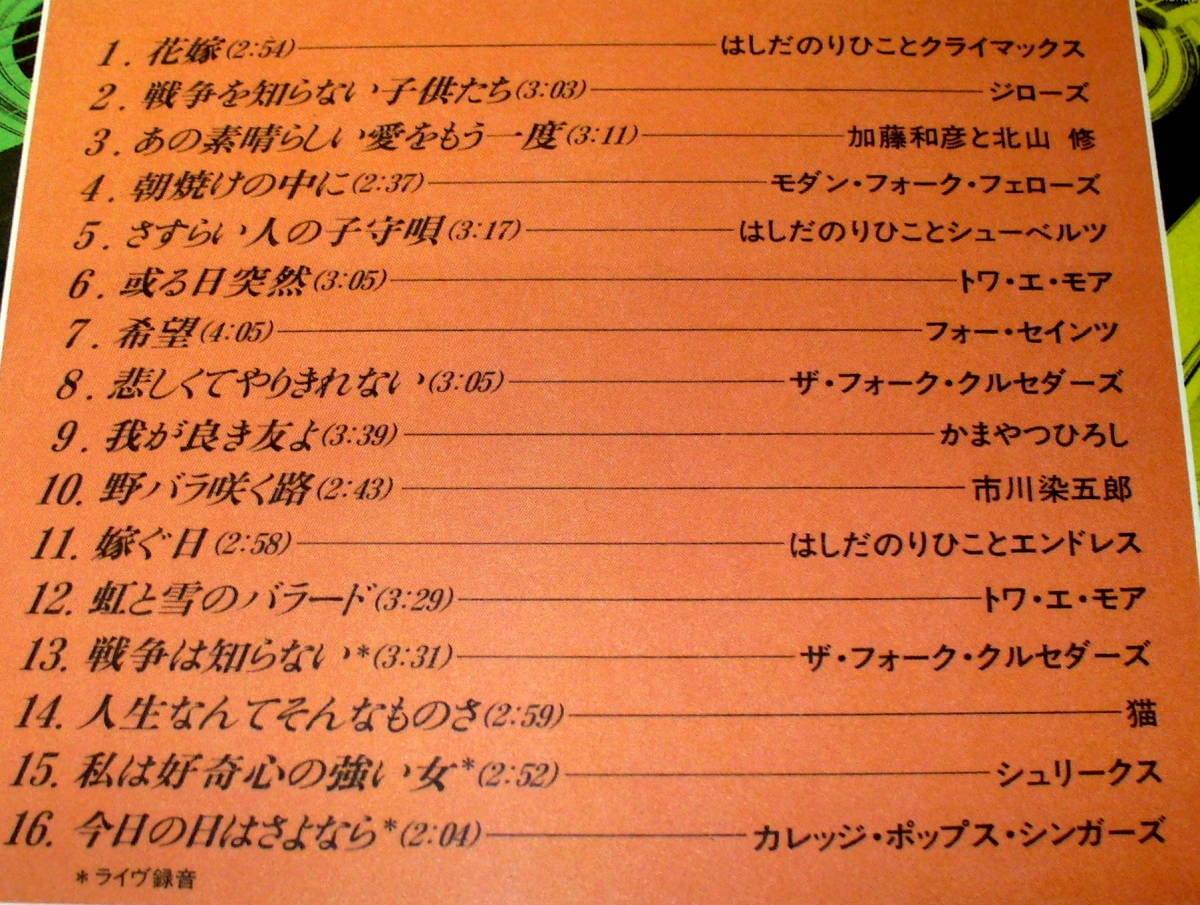 1. 花嫁(2:54) はしだのりひことクライマックス
2. 戦争を知らない子供たち(3:03) ジローズ
3. あの素晴らしい愛をもう一度(3:11) 加藤和彦と北山 修
4. 朝焼けの中に(2:37) モダン・フォーク・フェローズ
5. さすらい人の子守唄(3:17) はしだのりひことシューベルツ
6. 或る日突然(3:05) トワ・エ・モア
7. 希望(4:05) フォー・セインツ
8. 悲しくてやりきれない(3:05) ザ・フォーク・クルセダーズ
9. 我が良き友よ(3:39) かまやつひろし
10. 野バラ咲く路(2:43) 市川染五郎
11. 嫁ぐ日(2:58) はしだのりひことエンドレス
12. 虹と雪のバラード(3:29) トワ・エ・モア
13. 戦争は知らない*(3:31) ザ・フォーク・クルセダーズ
14. 人生なんてそんなものさ(2:59) 猫
15. 私は好奇心の強い女*(2:52) シュリークス
16. 今日の日はさよなら*(2:04) カレッジ・ポップス・シンガーズ
*ライヴ録音